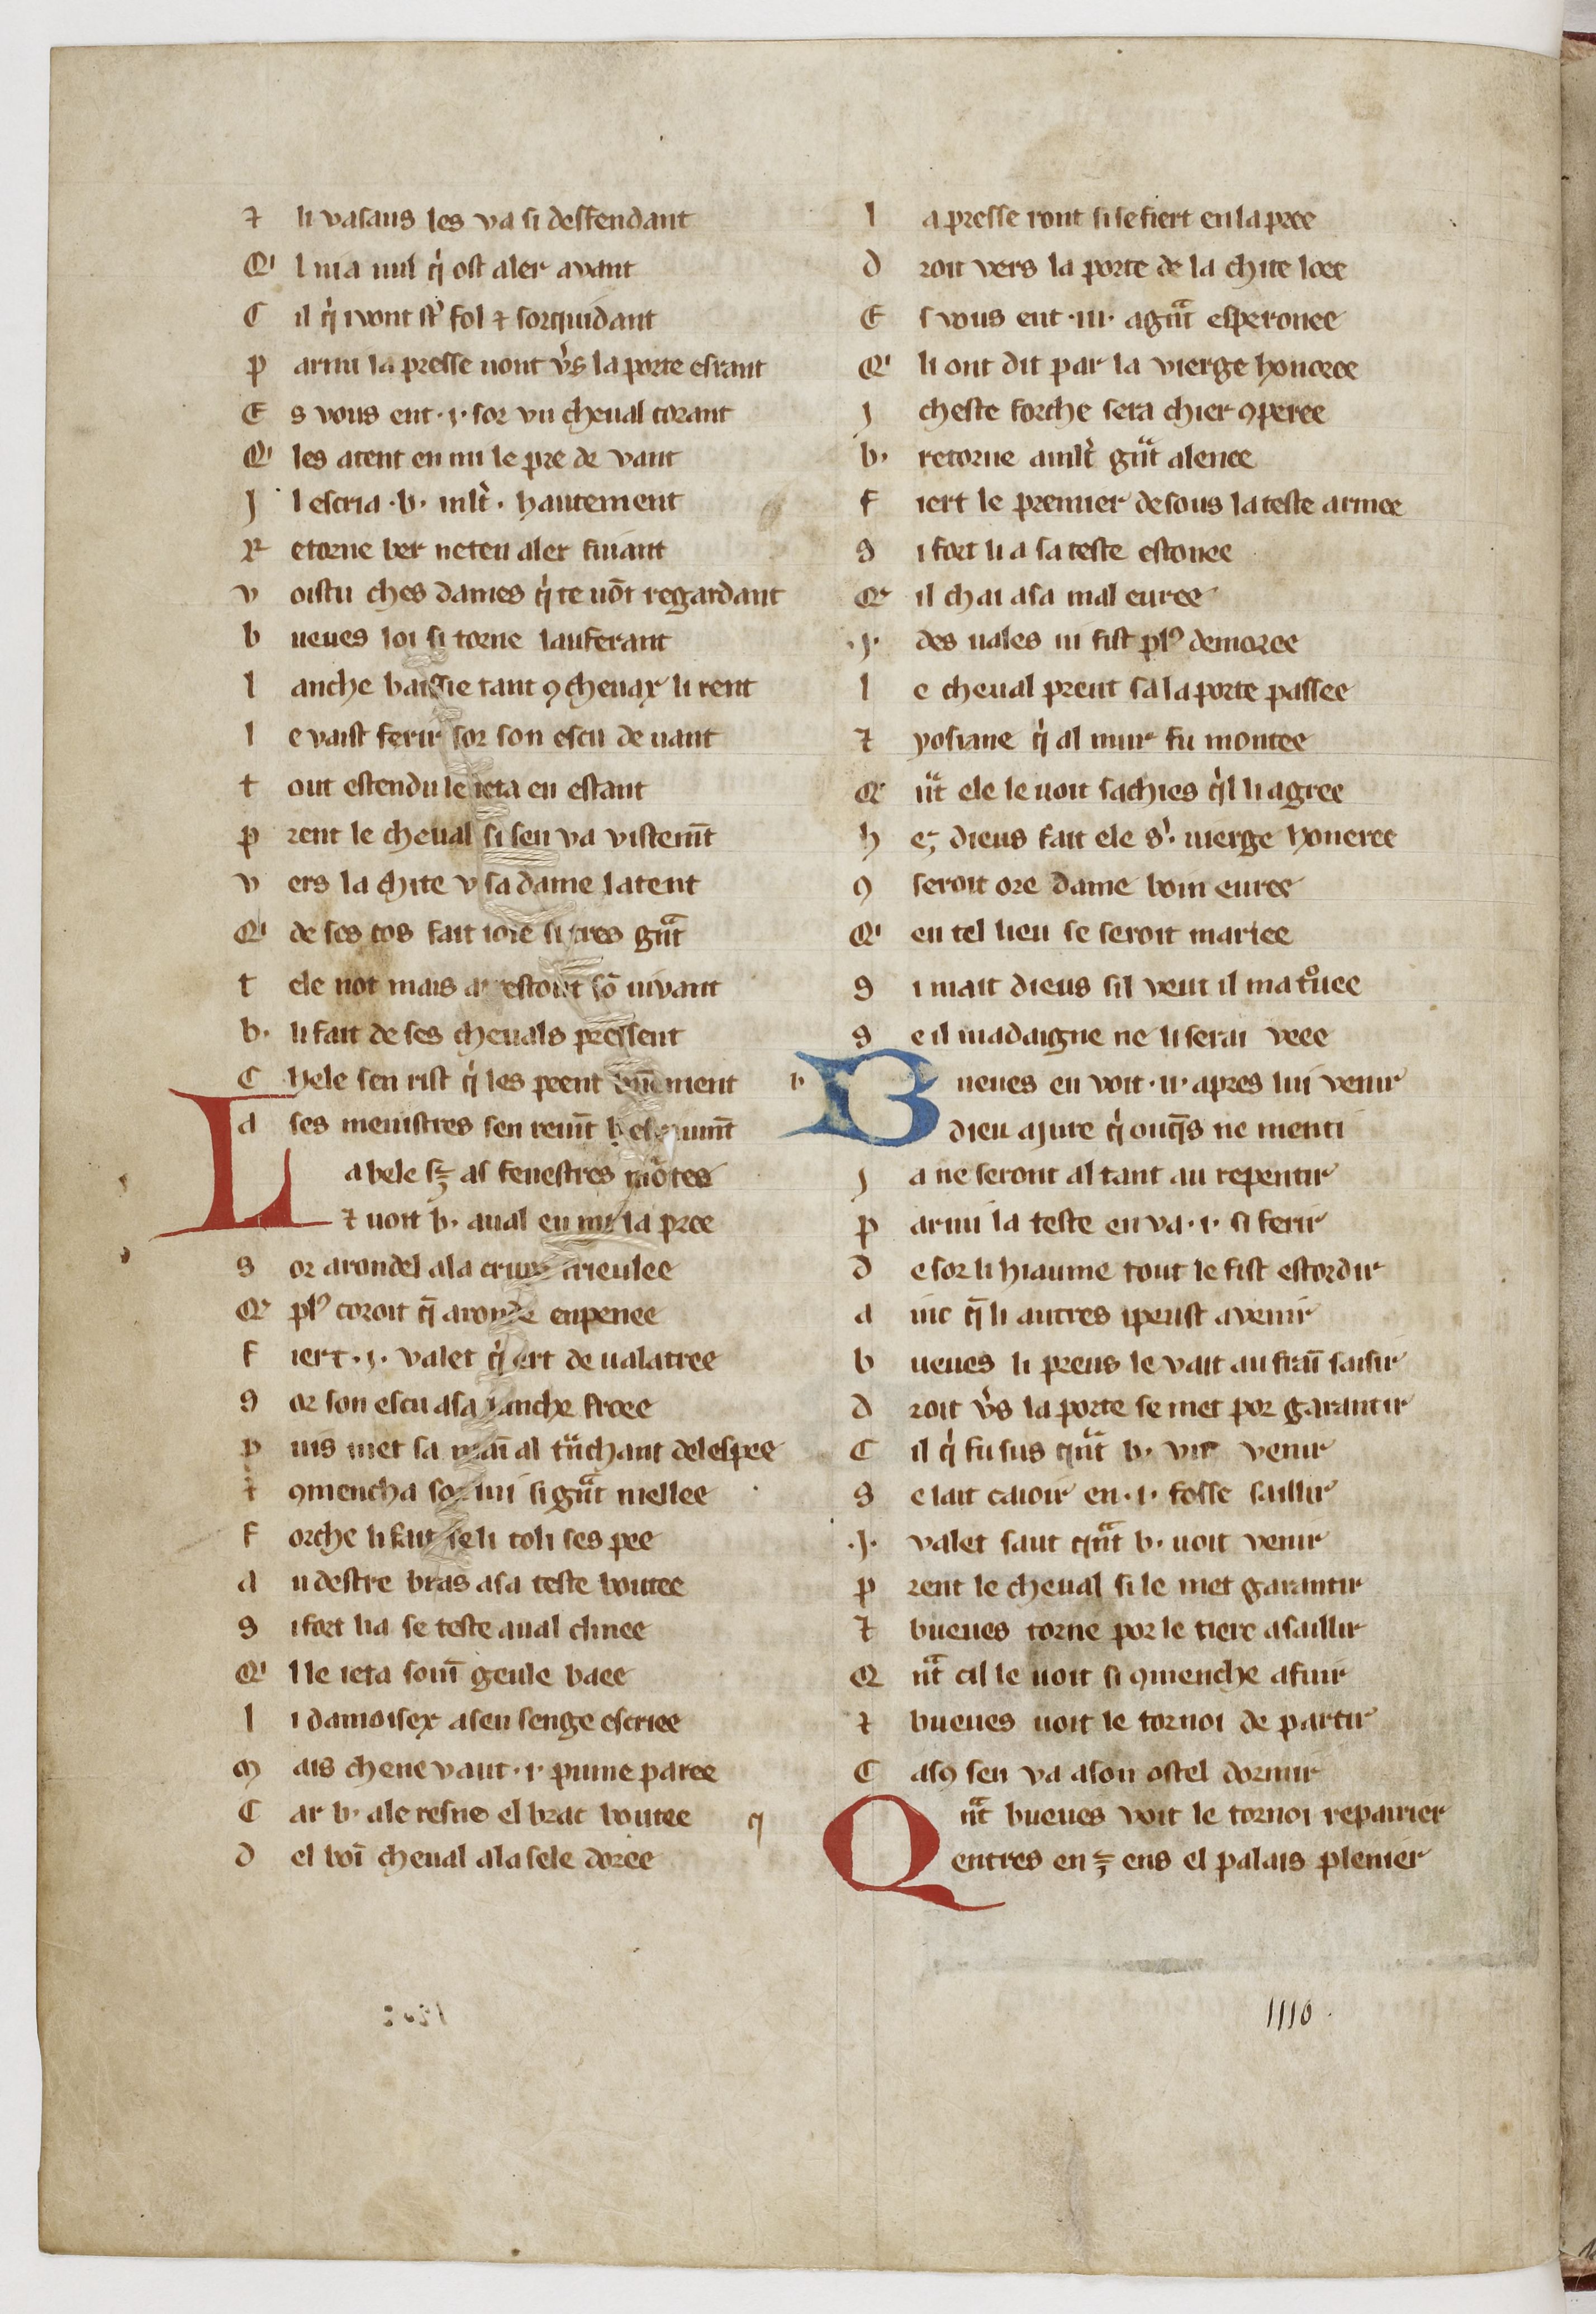 ⁊ li vasaus les va si deffendant
Qͥ l ni a nul qͥ ost aler avant
C il qͥ i vont st᾽ fol ⁊ sorquidant
p armi la presse uont v̾s la porte esrant
E s vous ent ·i· sor vn cheual corant
Qͥ les atent en mi le pre de vant
J l escria ·b· mlt̾· hautement
R etorne ber ne ten aler fuiant
v oistu ches dames qͥ te uōt regardant
b ueues loi si torne lauferant
l anche baissie tant ꝯ cheuax li rent
l e vaist ferir sor son escu de uant
t out estendu le ieta en estant
p rent le cheual si sen va vistem̄t
v ers la chite v sa dame latent
Qͥ de ses cos fait ioie si tres gnͣt
t ele not mais a restout sō uivant
b· li fait de ses cheuals pressent
C hele sen rist qͥ les prent bn̄ement
a ses menistres sen reuīt
L a bele sꝫ as fenestres mōtee
⁊ uoit b· aual en mi la pree
s or arondel a la crupe trieulee
Q plꝰ coroit q̄ aronde enpenee
f iert ·i· valet qͥ ert de ualatree
s or son escu a sa lanche froee
p uis met sa maī al tnͣchant del espee
⁊ ꝯmencha sor lui si gnͣt mellee
f orche li fait se li toli sespee
a u destre bras a sa teste boutee
s i fort li a se teste aual clinee
Qͥ l le ieta souī geule baee
l i damoisex a seu senge escriee
m ais che ne vaut ·i· pume paree
C ar b· a le resne el brac boutee
d el boī cheual a la sele doree
l a presse ront si se fiert en la pree
d roit vers la porte de la chite loee
E s vous ent ·iii· a gnͣt esperonee
Qͥ li ont dit par la vierge honoree
j cheste forche sera chier ꝯperee
b· retorne ainlt̾ gnͣt alenee
f iert le premier desous la teste armee
s i fort li a sa teste estonee
Q il chai a sa mal euree
·j· des uales ni fist plꝰ demoree
l e cheual prent sa la porte passee
⁊ yosiane qͥ al mur fu montee
Q nͣt ele le uoit sachies qͥl li agree
h eꝫ dieus fait ele sͥ· uierge honeree
ꝯ seroit ore dame boin euree
Qͥ en tel lieu se seroit mariee
s i mait dieus sil veut il ma tͦuee
s e il madaigne ne li serai veee
B ueues en voit ·ii· apres lui venir
dieu a jure qͥ onq̄s ne menti
j a ne seront al tant au repentir
p armi la teste en va ·i· si ferir
d esor li hiaume tout le fist estordir
a inc q̄ li autres i peust avenir
b ueues li preus le vait au fraī saisir
d roit v̾s la porte se met por garantir
C il qͥ fu sus qnͣt b· vit venir
s e lait caioir en ·i· fosse saillir
·j· valet saut qnͣt b· uoit venir
p rent le cheual si le met garantir
⁊ bueues torne por le tierc asaillir
Q nͣt cil le uoit si ꝯmenche a fuir
⁊ bueues uoit le tornoi de partir
C asꝯ sen va a son ostel dormir
Q nͣt bueues voit le tornoi repairier
entres en ꝫ ens el palais plenier
1110